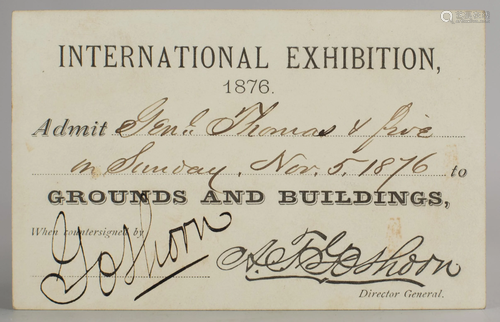 INTERNATIONAL EXHIBITION,
1876.
Admit Genl. Thomas & five
on Sunday, Nov. 5, 1876 to
GROUNDS AND BUILDINGS,
When countersigned by
Goshorn
A. T. Goshorn
Director General.